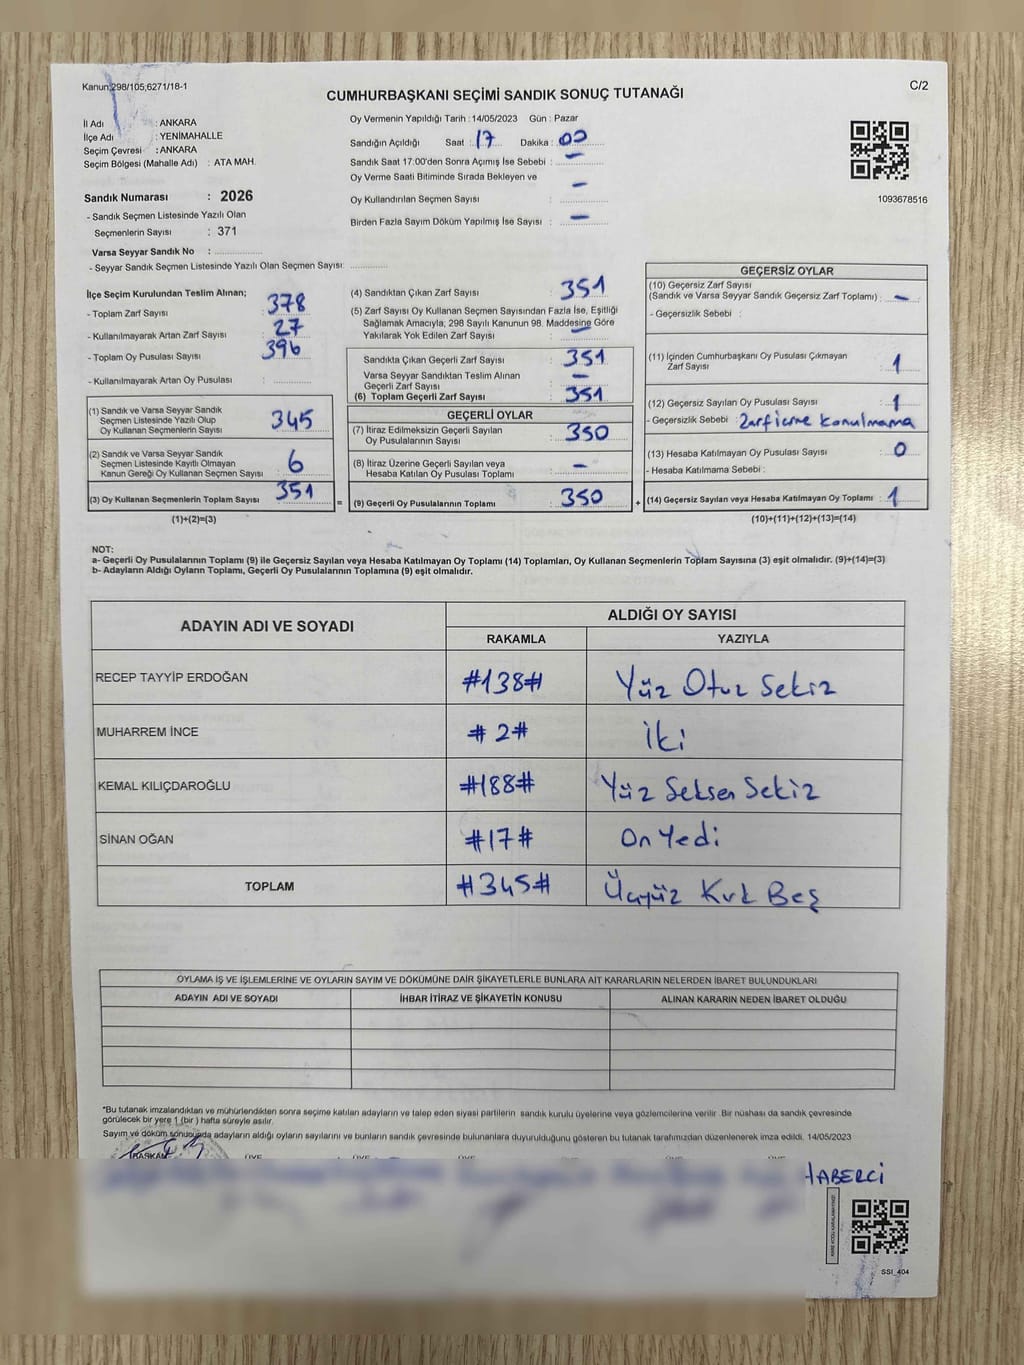 Kanun;298/105,6271/18-1
C/2
CUMHURBAŞKANI SEÇİMİ SANDIK SONUÇ TUTANAĞI
İl Adı : ANKARA
İlçe Adı : YENİMAHALLE
Seçim Çevresi : ANKARA
Seçim Bölgesi (Mahalle Adı) : ATA MAH.
Sandık Numarası : 2026
- Sandık Seçmen Listesinde Yazılı Olan
Seçmenlerin Sayısı : 371
Varsa Seyyar Sandık No :
- Seyyar Sandık Seçmen Listesinde Yazılı Olan Seçmen Sayısı:
Oy Vermenin Yapıldığı Tarih : 14/05/2023 Gün : Pazar
Sandığın Açıldığı Saat : 17 Dakika : 00
Sandık Saat 17:00'den Sonra Açımış İse Sebebi : –
Oy Verme Saati Bitiminde Sırada Bekleyen ve
Oy Kullandırılan Seçmen Sayısı : –
Birden Fazla Sayım Döküm Yapılmış İse Sayısı : –
1093678516
İlçe Seçim Kurulundan Teslim Alınan;
- Toplam Zarf Sayısı : 378
- Kullanılmayarak Artan Zarf Sayısı : 27
- Toplam Oy Pusulası Sayısı : 396
- Kullanılmayarak Artan Oy Pusulası :
(1) Sandık ve Varsa Seyyar Sandık
Seçmen Listesinde Yazılı Olup
Oy Kullanan Seçmenlerin Sayısı 345
(2) Sandık ve Varsa Seyyar Sandık
Seçmen Listesinde Kayıtlı Olmayan
Kanun Gereği Oy Kullanan Seçmen Sayısı 6
(3) Oy Kullanan Seçmenlerin Toplam Sayısı 351
(1)+(2)=(3)
(4) Sandıktan Çıkan Zarf Sayısı : 351
(5) Zarf Sayısı Oy Kullanan Seçmen Sayısından Fazla İse, Eşitliği
Sağlamak Amacıyla, 298 Sayılı Kanunun 98. Maddesine Göre
Yakılarak Yok Edilen Zarf Sayısı : –
Sandıkta Çıkan Geçerli Zarf Sayısı : 351
Varsa Seyyar Sandıktan Teslim Alınan
Geçerli Zarf Sayısı : –
(6) Toplam Geçerli Zarf Sayısı : 351
GEÇERLİ OYLAR
(7) İtiraz Edilmeksizin Geçerli Sayılan
Oy Pusulalarının Sayısı : 350
(8) İtiraz Üzerine Geçerli Sayılan veya
Hesaba Katılan Oy Pusulası Toplamı : –
= (9) Geçerli Oy Pusulalarının Toplamı : 350 +
GEÇERSİZ OYLAR
(10) Geçersiz Zarf Sayısı
(Sandık ve Varsa Seyyar Sandık Geçersiz Zarf Toplamı) : –
- Geçersizlik Sebebi :
(11) İçinden Cumhurbaşkanı Oy Pusulası Çıkmayan
Zarf Sayısı : 1
(12) Geçersiz Sayılan Oy Pusulası Sayısı : 1
- Geçersizlik Sebebi : Zarf içine konulmama
(13) Hesaba Katılmayan Oy Pusulası Sayısı : 0
- Hesaba Katılmama Sebebi :
(14) Geçersiz Sayılan veya Hesaba Katılmayan Oy Toplamı : 1
(10)+(11)+(12)+(13)=(14)
NOT:
a- Geçerli Oy Pusulalarının Toplamı (9) ile Geçersiz Sayılan veya Hesaba Katılmayan Oy Toplamı (14) Toplamları, Oy Kullanan Seçmenlerin Toplam Sayısına (3) eşit olmalıdır. (9)+(14)=(3)
b- Adayların Aldığı Oyların Toplamı, Geçerli Oy Pusulalarının Toplamına (9) eşit olmalıdır.
ADAYIN ADI VE SOYADI ALDIĞI OY SAYISI
RAKAMLA YAZIYLA
RECEP TAYYİP ERDOĞAN #138# Yüz Otuz Sekiz
MUHARREM İNCE #2# İki
KEMAL KILIÇDAROĞLU #188# Yüz Seksen Sekiz
SİNAN OĞAN #17# On Yedi
TOPLAM #345# Üçyüz Kırk Beş
OYLAMA İŞ VE İŞLEMLERİNE VE OYLARIN SAYIM VE DÖKÜMÜNE DAİR ŞİKAYETLERLE BUNLARA AİT KARARLARIN NELERDEN İBARET BULUNDUKLARI
ADAYIN ADI VE SOYADI İHBAR İTİRAZ VE ŞİKAYETİN KONUSU ALINAN KARARIN NEDEN İBARET OLDUĞU
*Bu tutanak imzalandıktan ve mühürlendikten sonra seçime katılan adayların ve talep eden siyasi partilerin sandık kurulu üyelerine veya gözlemcilerine verilir .Bir nüshası da sandık çevresinde
görülecek bir yere 1 (bir ) hafta süreyle asılır.
Sayım ve döküm sonucunda adayların aldığı oyların sayılarını ve bunların sandık çevresinde bulunanlara duyurulduğunu gösteren bu tutanak tarafımızdan düzenlenerek imza edildi. 14/05/2023
BAŞKAN ÜYE ÜYE ÜYE ÜYE ÜYE
HABERCİ
SSI_404